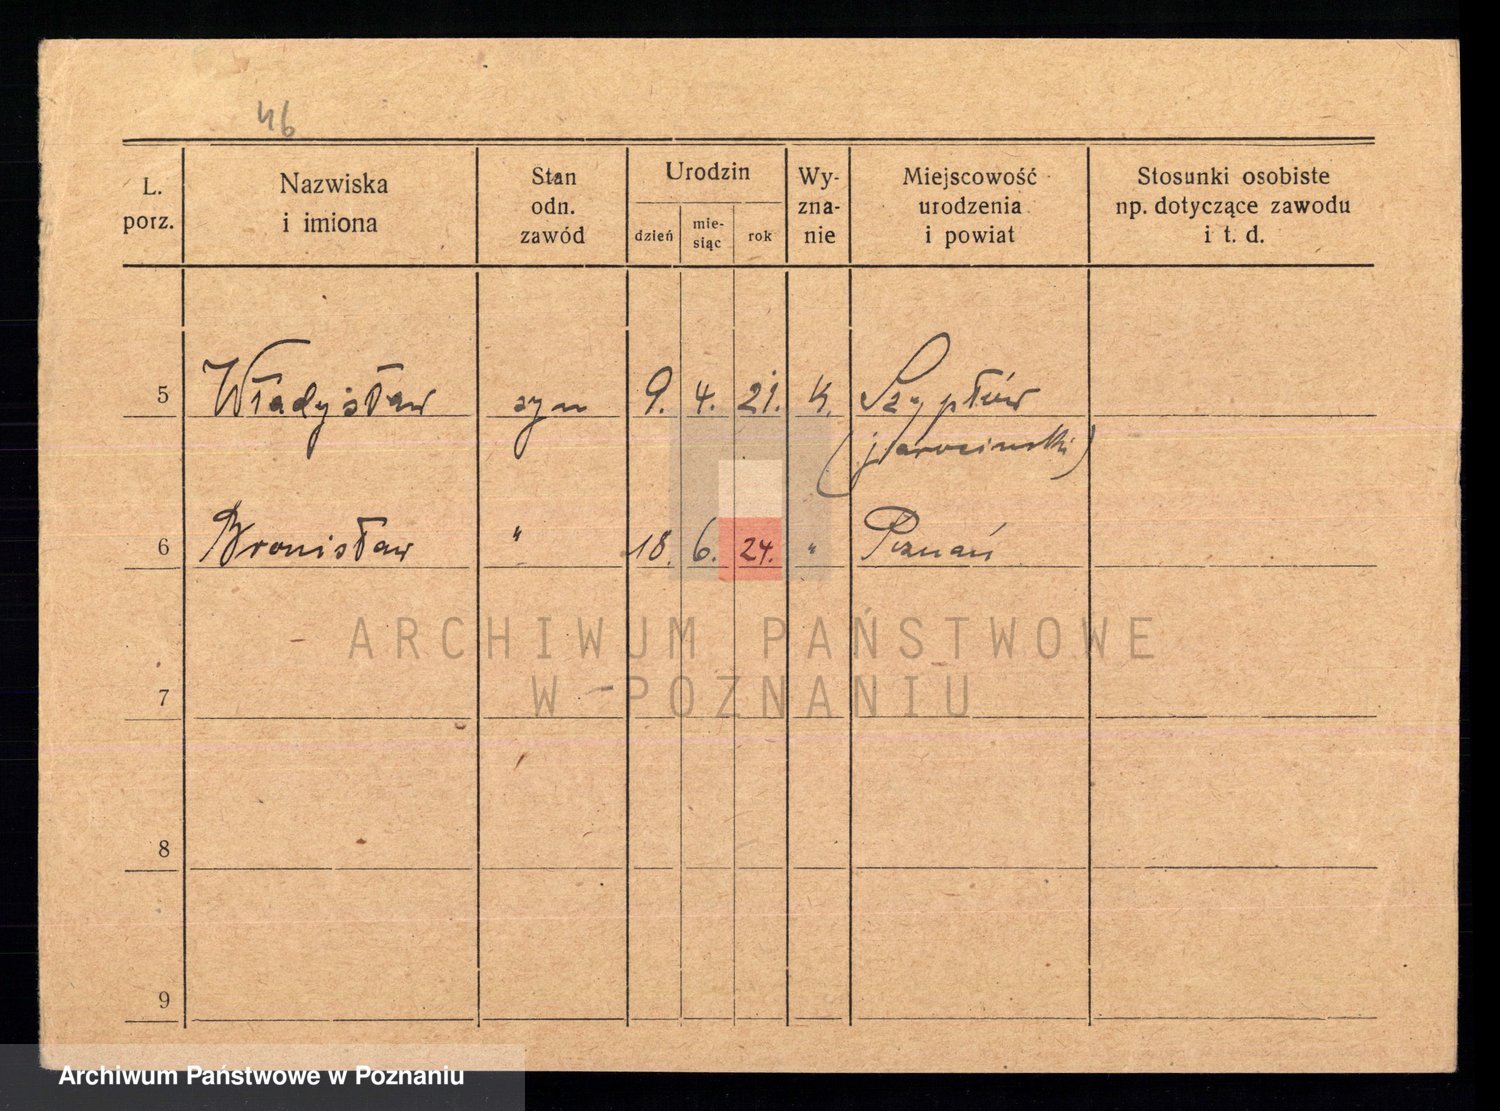 46
L. porz.
Nazwiska i imiona
Stan odn. zawód
Urodzin
dzień
mie- siąc
rok
Wy- zna- nie
Miejscowość urodzenia i powiat
Stosunki osobiste np. dotyczące zawodu i t. d.
5 Władysław syn 9. 4. 21. k. Szypłów
(jarociński)
6 Bronisław " 18. 6. 24. " Poznań
ARCHIWUM PAŃSTWOWE
W POZNANIU
7
8
9
Archiwum Państwowe w Poznaniu